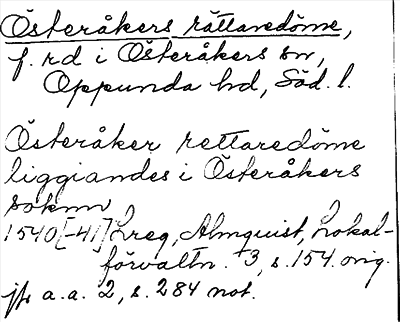 Österåkers rättaredöme,
f. rd i Österåkers sn,
Oppunda hd, Söd. l.
Österåker rettaredöme
liggiandes i Österåkers
soknn
1540[-41] Lreg, Almquist, Lokal-
förvaltn. 3, s. 154. orig.
jfr a.a. 2, s. 284 not.